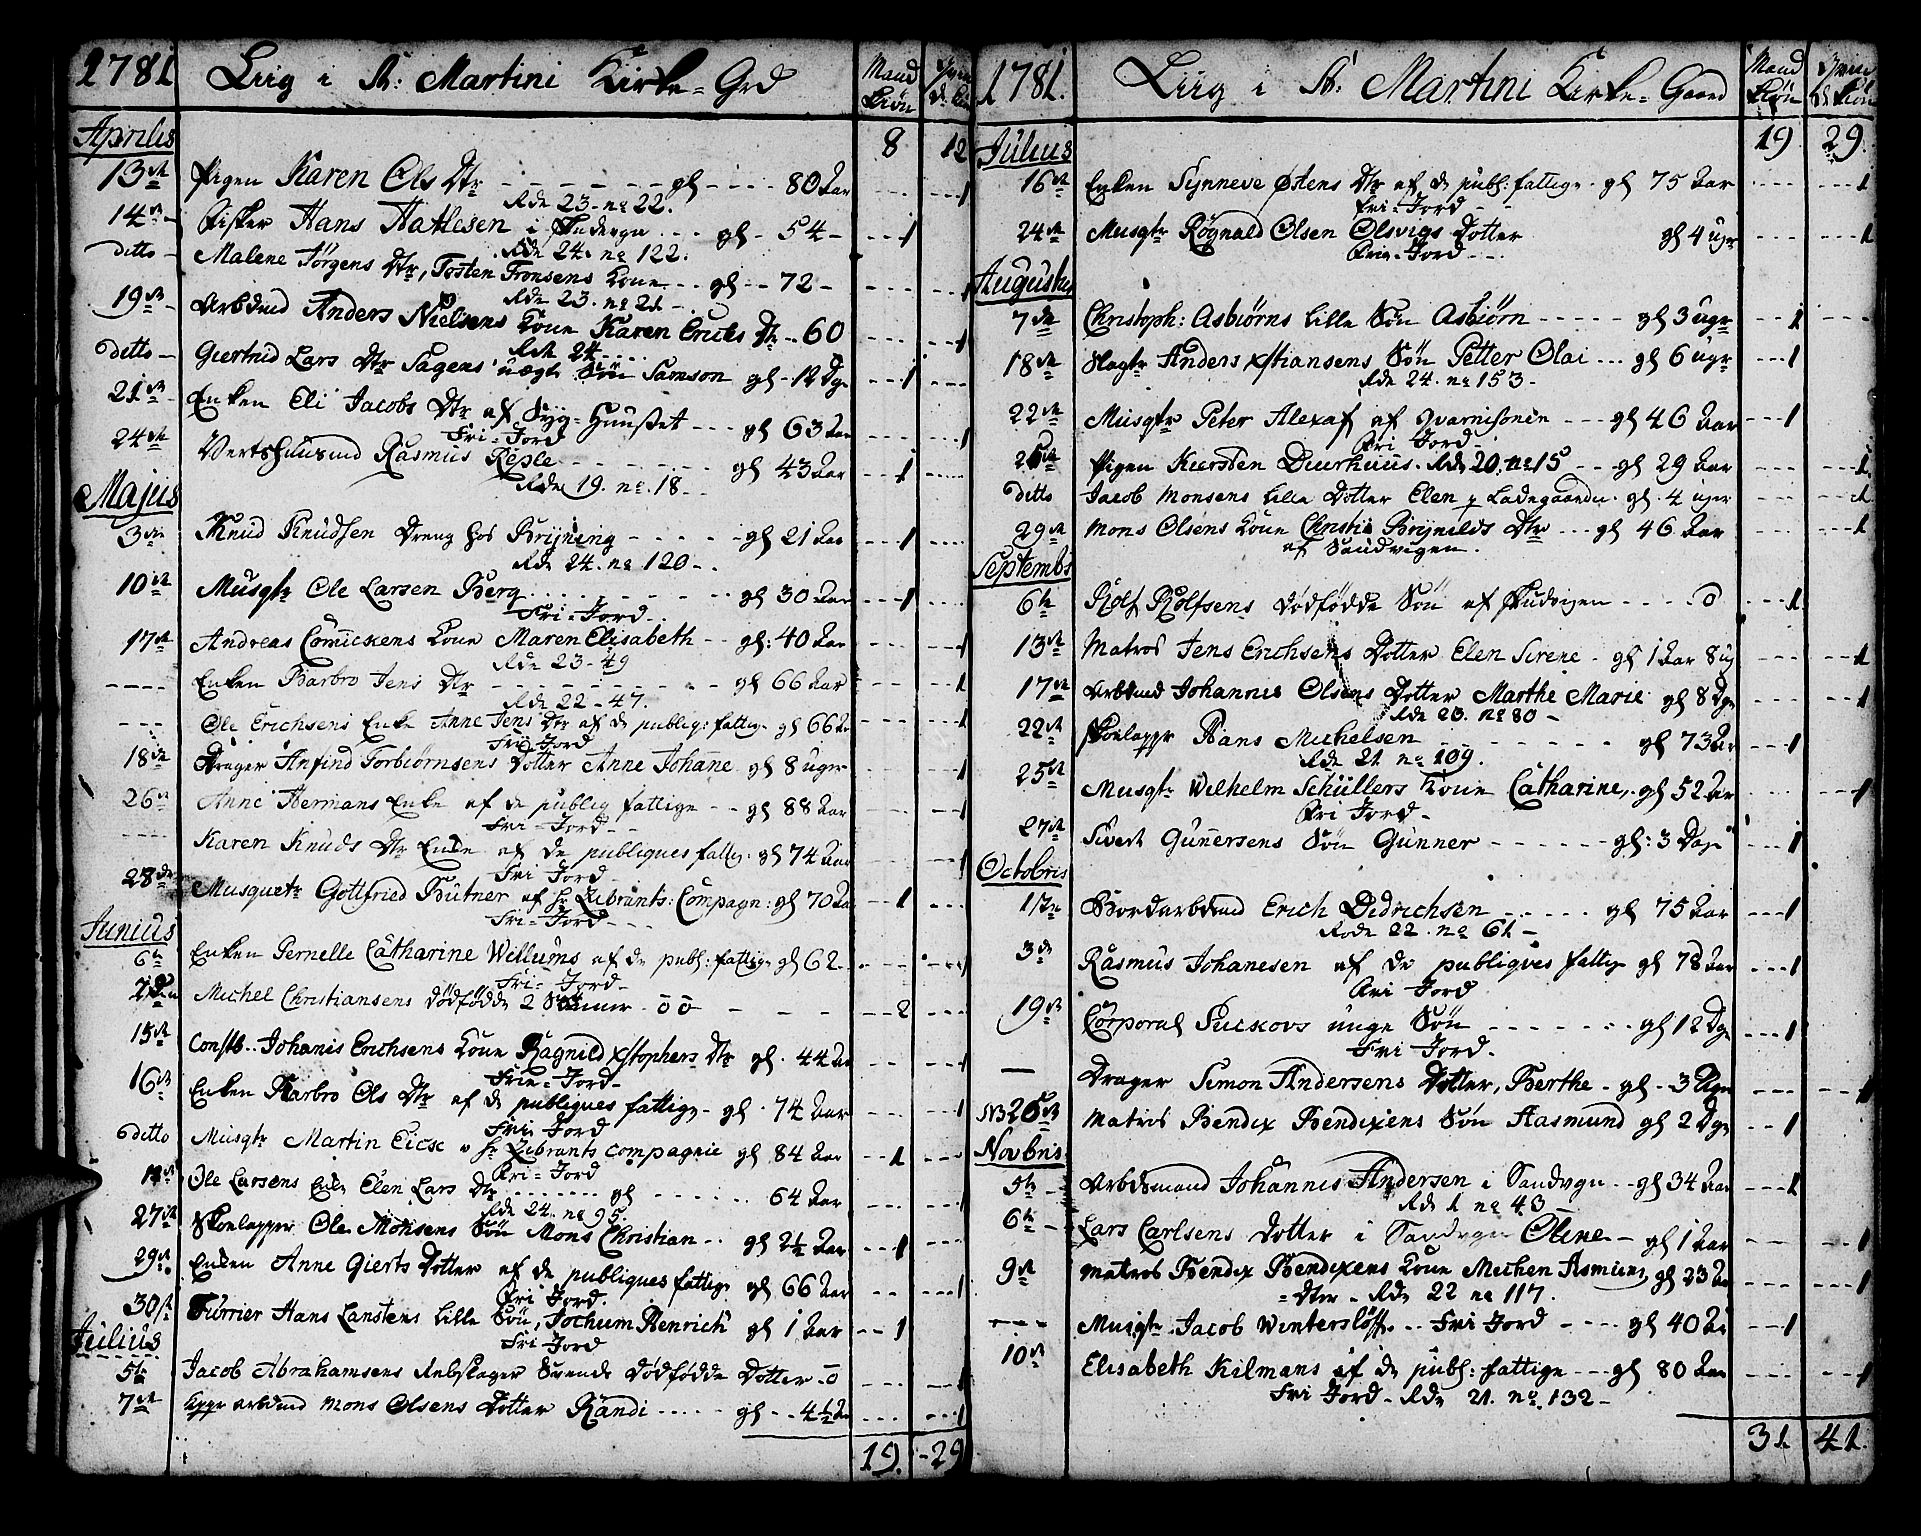 1781 Liig i St: Martini Kirke-Grd Mand Kiön
Aprilis 8 12
13de Pigen Karen Ols Dtr gl 80 Aar 1
Rde 23 - no 22.
14de Fisker Hans Hatlesen i gl 54 1
Rde 24. no 122.
ditto Malene Jörgens Dtr, Tosten Tronsens Kone gl 72 1
Rde 23. no 21
19de Arbdmd Anders Nielsens Kone Karen Erichs Dtr 60 1
Rde 24
ditto Giertrud Lars Dtr Sagens uægte Sön Samson gl 12 Dge 1
21de Enken Eli Jacobs Dtr af Syg-Huuset gl 63 Aar 1
Fri-Jord
24de Vertshuusmd Rasmus Reple gl 43 Aar 1
Rde 19. no. 18
Majus
3de Knud Knudsen Dreng hos Bryning gl 21 Aar 1
Rde 24. no 120
10de Musqtr Ole Larsen Berg gl 30 Aar 1
Fri-Jord
17de Andreas Comickens Kone Maren Elisabeth gl: 40 Aar 1
Rde 23-49
Enken Barbro Jens Dtr gl 66 Aar 1
Rde 22-47.
Ole Erichsens Enke Anne Jens Dtr af de publiq: fattige gl 66 A 1
Fri Jord
18de Drager Anfind Torbiörnsens Dotter Anne Johane gl 8 uger 1
26de Anne Hermans Enke af de publiq fattige gl 88 Aar 1
Fri-Jord
Karen Knuds Dtr Enke af de publiques fattig: gl 74 Aar 1
Fri Jord
28de Musquetr Gottfried Bütner af Hr Zibrants: Compagn: gl 70 Aa 1
Fri-Jord
Junius
6te Enken Pernelle Catharine Willums af de publ: fattige gl 62 1
Fri-Jord
Michel Christiansens dödfödde 2 Sönner 2
15de Constb. Johanis Erichsens Kone Ragnild Xstophers Dtr gl. 44 Aar 1
Frie-Jord
16de Enken Barbro Ols Dtr af de publiques fattige gl. 74 Aar 1
Fri Jord
ditto Musqtr Martin Eicse v Hr Zibrants Compagnie gl 84 Aar 1
Fri-Jord
18de Ole Larsens Enke Elen Lars Dtr gl 64 Aar 1
Rde 24. no 95.
27de Skoelapper Ole Monsens Sön Mons Christian gl 2½ Aar 1
29de Enken Anne Gierts Dotter af de publiques fattige gl 66 Aar 1
Fri Jord.
30te Furrier Hans Lanstens lille Sön, Jochum Henrich gl 1 Aar 1
Fri-Jord
Julius
5te Jacob Abrahamsens Rebslager Svends Dödfödde Dotter 1
7de arbdmd Mons Olsens Dotter Randi gl 4½ A 1
19. 29
1781. Liig i St: Martini Kirke-Gaard Mand Kiön Qvinde Kiön
Julius 19 29.
16de Enken Synneve Østens Dtr af de publ: fattige gl 75 Aar 1
Fri-Jord
24de Musqtr Rögnald Olsen Olsvigs Dotter gl 4 ugr 1
Fri-Jord
Augustus
7de Christoph: Asbiörns lille Sön Asbiörn gl 3 ugr 1
18de Slagtr Anders Xstiansens Sön Petter Olai gl 6 ugr 1
Rde 24. no 153
22de Musqtr Peter Alexaf af Qvarnisonen gl 46 Aar 1
Fri Jord
Pigen Kiersten Duurhuus. Rde 20. no 15 gl 29 Aar 1
ditto Jacob Monsens lille Dotter Elen p Ladegaarden gl 4 uger 1
29de Mons Olsens Kone Christi Brynilds Dtr gl 46 Aar 1
af Sandvigen.
Septembs
6te Rolf Rolfsens Dödfödde Sön af Skudvigen 1
13de Matros Jens Erichsens Dotter Elen Sirene gl 1 Aar 8 ug 1
17de Arbdmd Johannis Olsens Dotter Marthe Marie gl 8 Dge 1
Rde 23. no 80
22de Skoelappr Hans Michelsen gl 73 Aar 1
Rde 21 no 109.
25de Musqtr Wilhelm Schüllers Kone Catharine, gl 52 Aar 1
Fri Jord
27de Sivert Gunnersens Sön Gunner gl: 3 Dage 1
Octobris
Bordarbdmd Erich Didrichsen gl 75 Aar 1
Rode 22. no 61
3de Rasmus Johanesen af de publiqves fattige gl 78 Aar 1
Fri Jord
19de Corporal Suckovs unge Sön gl 12 Dge 1
Fri Jord.
Drager Simon Andersens Dotter, Berthe gl 3 Uger 1
NB 26de Matros Bendix Bendixens Sön Aasmund gl 2 Dge 1
Novbris
5te Arbdsmand Johannis Andersen i Sandvgn gl 34 Aar 1
Rde 1 no 43
6te Lars Carlsens Dotter i Sandvgn Oline gl 1 Aar 1
9de Matros Bendix Bendixens Kone Michen Asmiens gl 23 Aa 1
Dttr Rde 22 no 117.
Musqtr Jacob Wintersløff Fri Jord gl 40 Aa 1
10de Elisabeth Kilmans af de publ: fattige gl 80 Aar 1
Fri Jord Rde 21. no. 132
31 41.